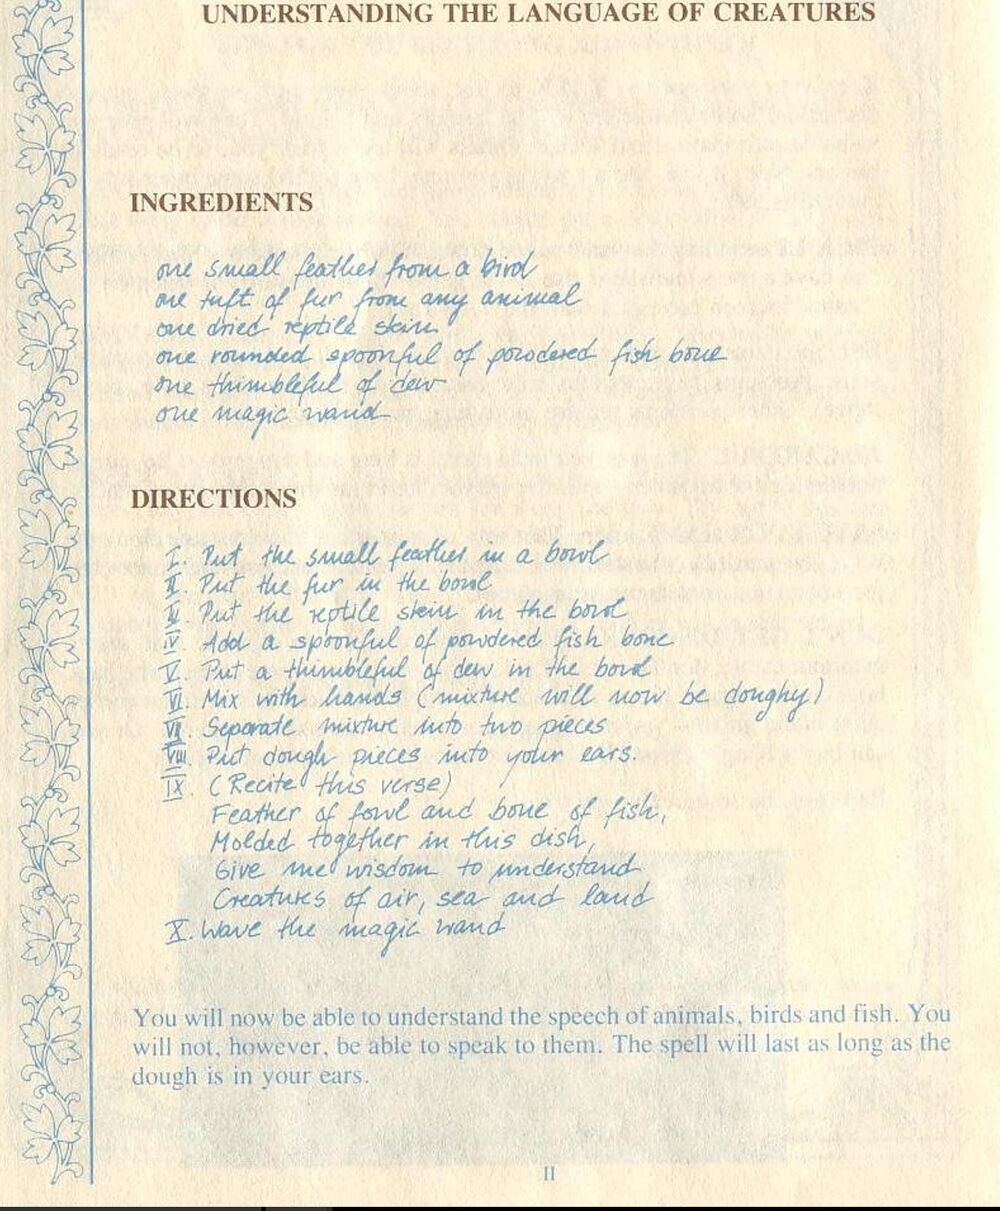 UNDERSTANDING THE LANGUAGE OF CREATURES
INGREDIENTS
one small feather from a bird
one tuft of fur from any animal
one dried reptile skin
one rounded spoonful of powdered fish bone
one thimbleful of dew
one magic wand
DIRECTIONS
I. Put the small feather in a bowl
II. Put the fur in the bowl
III. Put the reptile skin in the bowl
IV. Add a spoonful of powdered fish bone
V. Put a thimbleful of dew in the bowl
VI. Mix with hands (mixture will now be doughy)
VII. Separate mixture into two pieces
VIII. Put dough pieces into your ears.
IX. (Recite this verse)
Feather of fowl and bone of fish,
Molded together in this dish,
Give me wisdom to understand
Creatures of air, sea and land
X. Wave the magic wand
You will now be able to understand the speech of animals, birds and fish. You
will not, however, be able to speak to them. The spell will last as long as the
dough is in your ears.
II